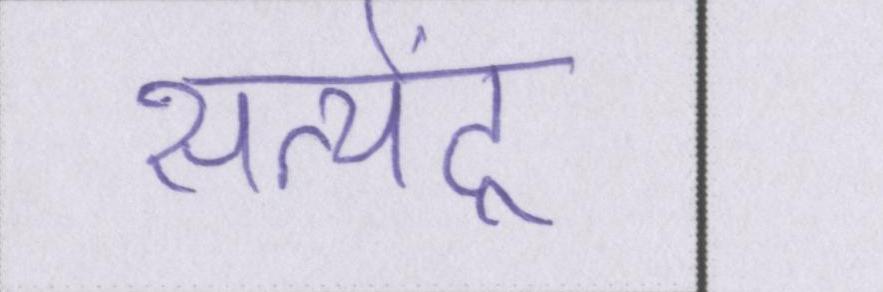 सत्येंद्र